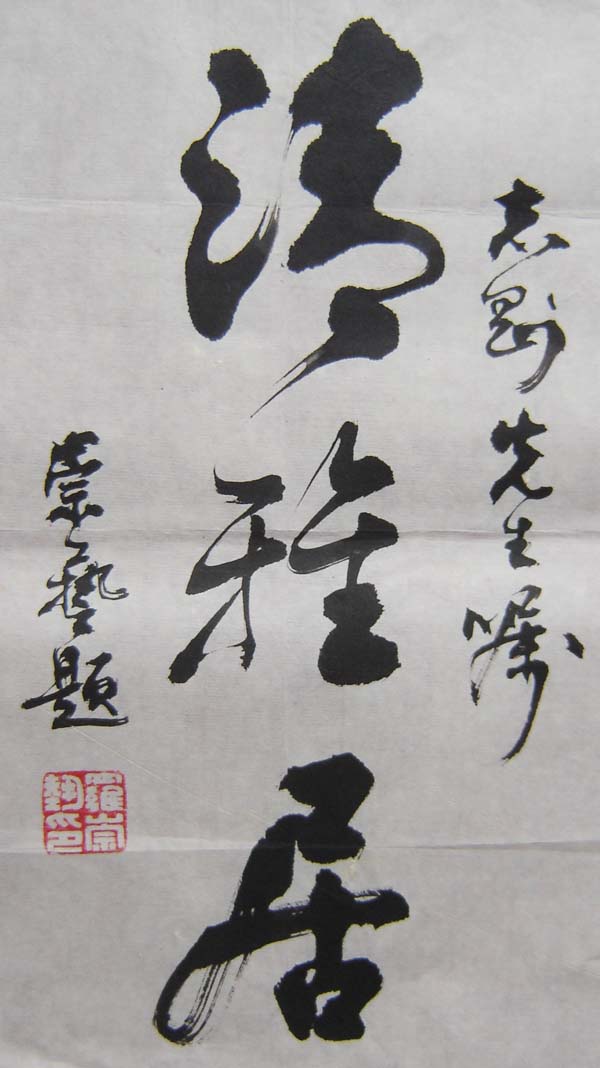 志剛先生嘱
清雅居
崇藝題
羅崇
藝印